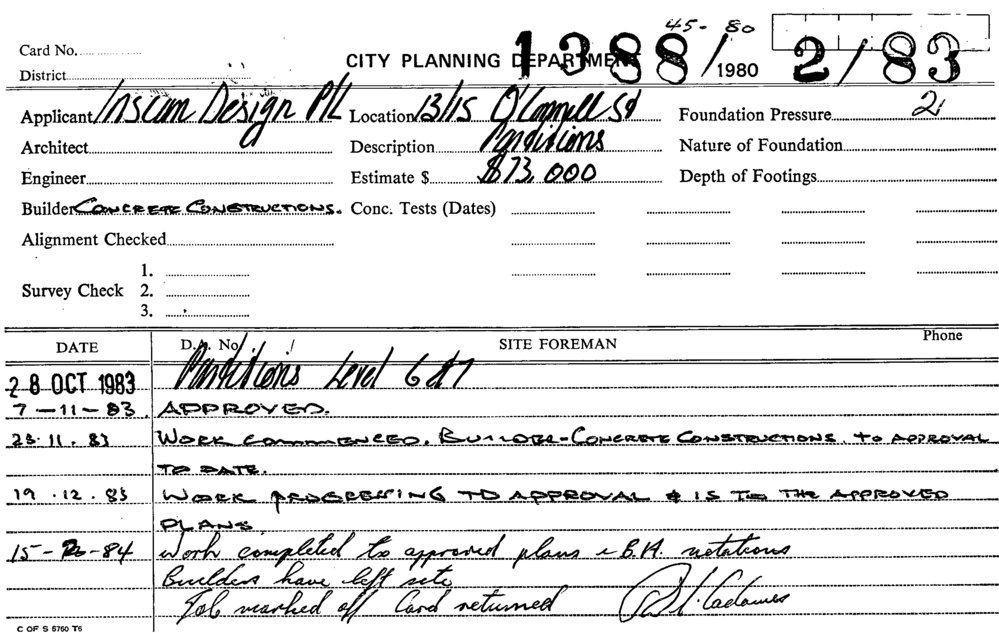 45-80
Card No.
CITY PLANNING DEPARTMENT 1388/1980 2/83
District
Applicant Inscam Design P/L Location 13/15 O'Connell St Foundation Pressure 2
Architect Description Partitions Nature of Foundation
Engineer Estimate $ $73,000 Depth of Footings
Builder CONCRETE CONSTRUCTIONS. Conc. Tests (Dates)
Alignment Checked
1.
Survey Check 2.
3.
DATE D.A. No. SITE FOREMAN Phone
28 OCT 1983 Partitions Level 6 & 7
7-11-83. APPROVED.
23.11.83 WORK COMMENCED. BUILDER-CONCRETE CONSTRUCTIONS. TO APPROVAL
TO DATE.
19.12.83 WORK PROGRESSING TO APPROVAL & IS TO THE APPROVED
PLANS
15-2-84 Work completed to approved plans & B.A. notations
Builders have left site
Job marked off Card returned
C OF S 5760 T6